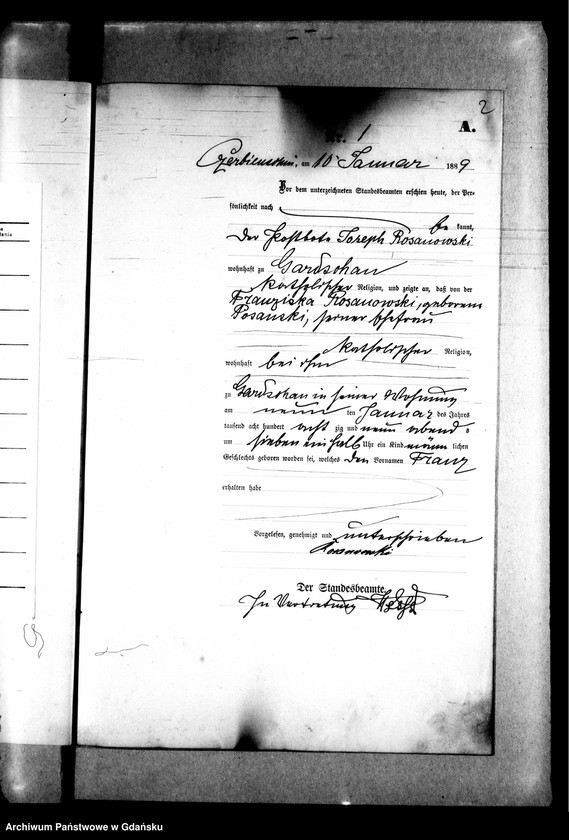 2
Nr. 1
A.
am 10 Januar 1889
Vor dem unterzeichneten Standesbeamten erschien heute, der Per-
sönlichkeit nach
be kannt,
der Postbote Joseph Rosanowski
wohnhaft zu Gardschau
katholischer Religion, und zeigte an, daß von der
Franziska Rosanowski, geborenen
Posanski, seiner Ehefrau
katholischer Religion,
wohnhaft bei ihm
zu Gardschau in seiner Wohnung
am neun ten Januar des Jahres
tausend acht hundert acht zig und neun abend s
um sieben ein halb Uhr ein Kind männ lichen
Geschlechts geboren worden sei, welches den Vornamen Franz
erhalten habe
Vorgelesen, genehmigt und unterschrieben
Rosanowski
Der Standesbeamte
In Vertretung
Archiwum Państwowe w Gdańsku